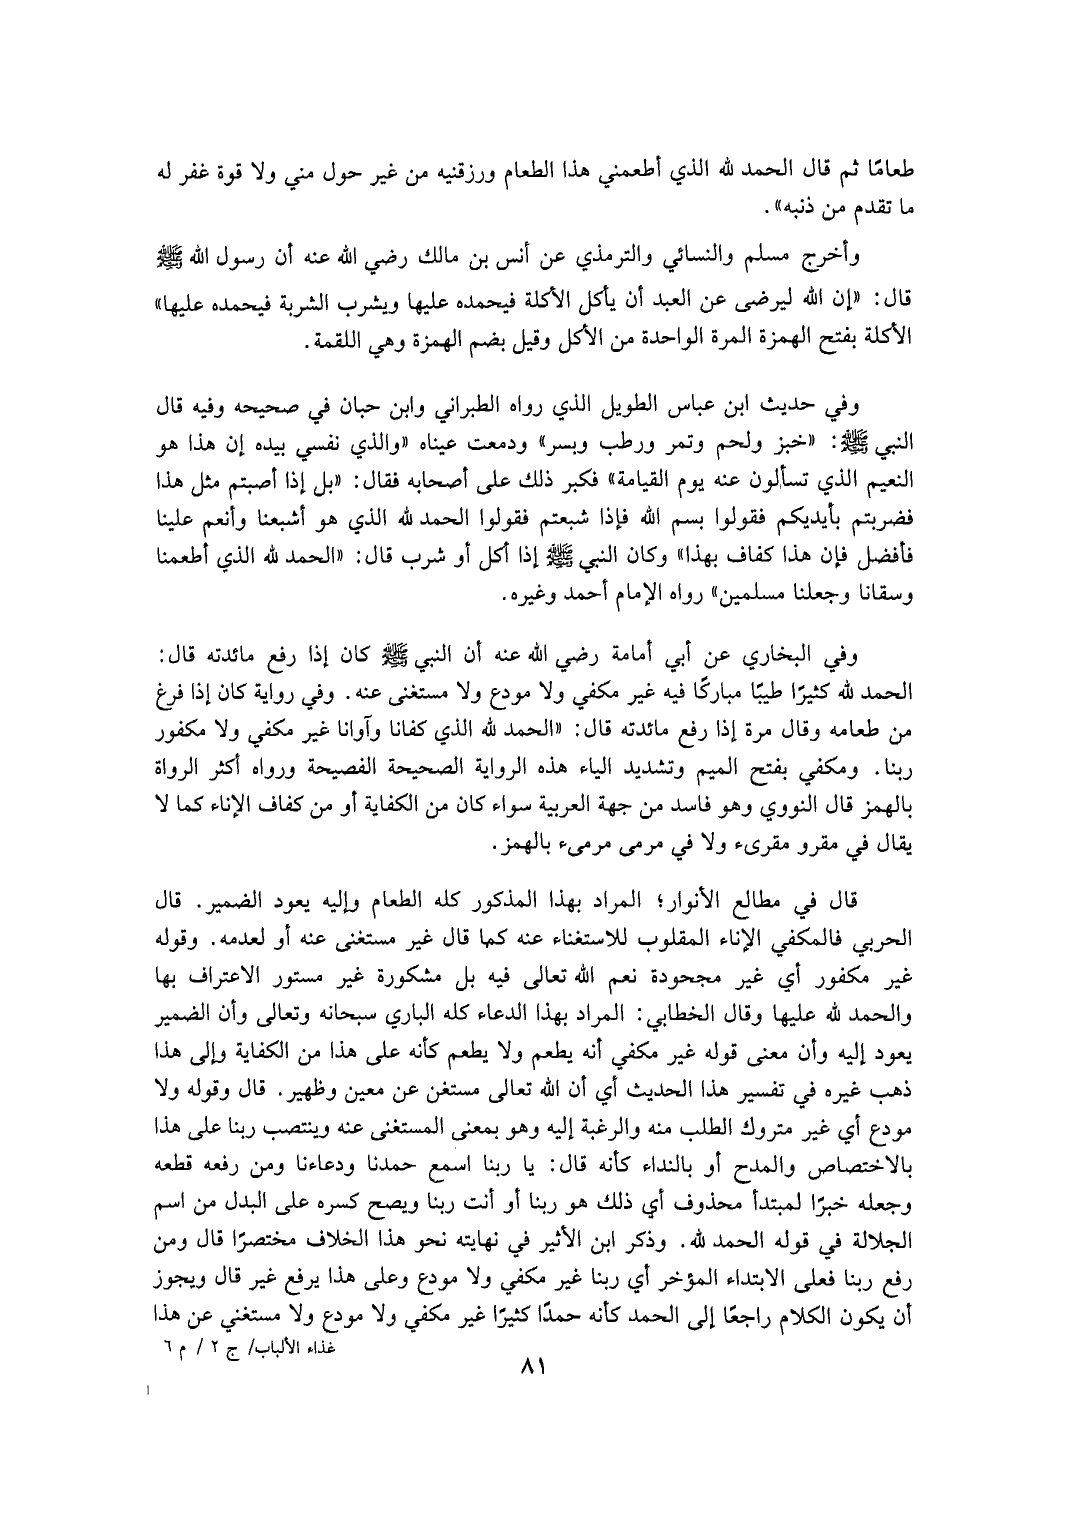 طعامًا ثم قال الحمد لله الذي أطعمني هذا الطعام ورزقنيه من غير حول مني ولا قوة غفر له
ما تقدم من ذنبه».
وأخرج مسلم والنسائي والترمذي عن أنس بن مالك رضي الله عنه أن رسول الله ﷺ
قال: «إن الله ليرضى عن العبد أن يأكل الأكلة فيحمده عليها ويشرب الشربة فيحمده عليها»
الأكلة بفتح الهمزة المرة الواحدة من الأكل وقيل بضم الهمزة وهي اللقمة.
وفي حديث ابن عباس الطويل الذي رواه الطبراني وابن حبان في صحيحه وفيه قال
النبي ﷺ: «خبز ولحم وتمر ورطب وبسر» ودمعت عيناه «والذي نفسي بيده إن هذا هو
النعيم الذي تسألون عنه يوم القيامة» فكبر ذلك على أصحابه فقال: «بل إذا أصبتم مثل هذا
فضربتم بأيديكم فقولوا بسم الله فإذا شبعتم فقولوا الحمد لله الذي هو أشبعنا وأنعم علينا
فأفضل فإن هذا كفاف بهذا» وكان النبي ﷺ إذا أكل أو شرب قال: «الحمد لله الذي أطعمنا
وسقانا وجعلنا مسلمين» رواه الإمام أحمد وغيره.
وفي البخاري عن أبي أمامة رضي الله عنه أن النبي ﷺ كان إذا رفع مائدته قال:
الحمد لله كثيرًا طيبًا مباركًا فيه غير مكفي ولا مودع ولا مستغنى عنه. وفي رواية كان إذا فرغ
من طعامه وقال مرة إذا رفع مائدته قال: «الحمد لله الذي كفانا وآوانا غير مكفي ولا مكفور
ربنا. ومكفي بفتح الميم وتشديد الياء هذه الرواية الصحيحة الفصيحة ورواه أكثر الرواة
بالهمز قال النووي وهو فاسد من جهة العربية سواء كان من الكفاية أو من كفاف الإناء كما لا
يقال في مقرو مقرىء ولا في مرمى مرمىء بالهمز.
قال في مطالع الأنوار؛ المراد بهذا المذكور كله الطعام وإليه يعود الضمير. قال
الحربي فالمكفي الإناء المقلوب للاستغناء عنه كما قال غير مستغنى عنه أو لعدمه. وقوله
غير مكفور أي غير مجحودة نعم الله تعالى فيه بل مشكورة غير مستور الاعتراف بها
والحمد لله عليها وقال الخطابي: المراد بهذا الدعاء كله الباري سبحانه وتعالى وأن الضمير
يعود إليه وأن معنى قوله غير مكفي أنه يطعم ولا يطعم كأنه على هذا من الكفاية وإلى هذا
ذهب غيره في تفسير هذا الحديث أي أن الله تعالى مستغن عن معين وظهير. قال وقوله ولا
مودع أي غير متروك الطلب منه والرغبة إليه وهو بمعنى المستغنى عنه وينتصب ربنا على هذا
بالاختصاص والمدح أو بالنداء كأنه قال: يا ربنا اسمع حمدنا ودعاءنا ومن رفعه قطعه
وجعله خبرًا لمبتدأ محذوف أي ذلك هو ربنا أو أنت ربنا ويصح كسره على البدل من اسم
الجلالة في قوله الحمد لله. وذكر ابن الأثير في نهايته نحو هذا الخلاف مختصرًا قال ومن
رفع ربنا فعلى الابتداء المؤخر أي ربنا غير مكفي ولا مودع وعلى هذا يرفع غير قال ويجوز
أن يكون الكلام راجعًا إلى الحمد كأنه حمدًا كثيرًا غير مكفي ولا مودع ولا مستغني عن هذا
غذاء الألباب/ ج ٢ / م ٦
٨١